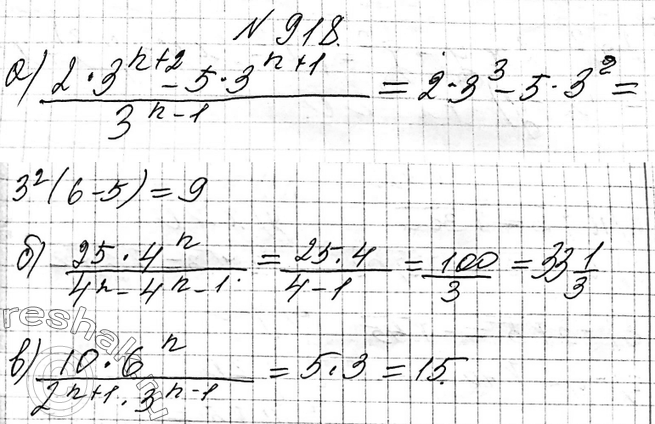 N 918.
а) (2·3^(n+2) - 5·3^(n+1))/3^(n-1) = 2·3^3 - 5·3^2 =
3^2(6-5) = 9
б) (25·4^n)/(4^n - 4^(n-1)) = (25·4)/(4-1) = 100/3 = 33 1/3
в) (10·6^n)/(2^(n+1)·3^(n-1)) = 5·3 = 15.
reshak.ru